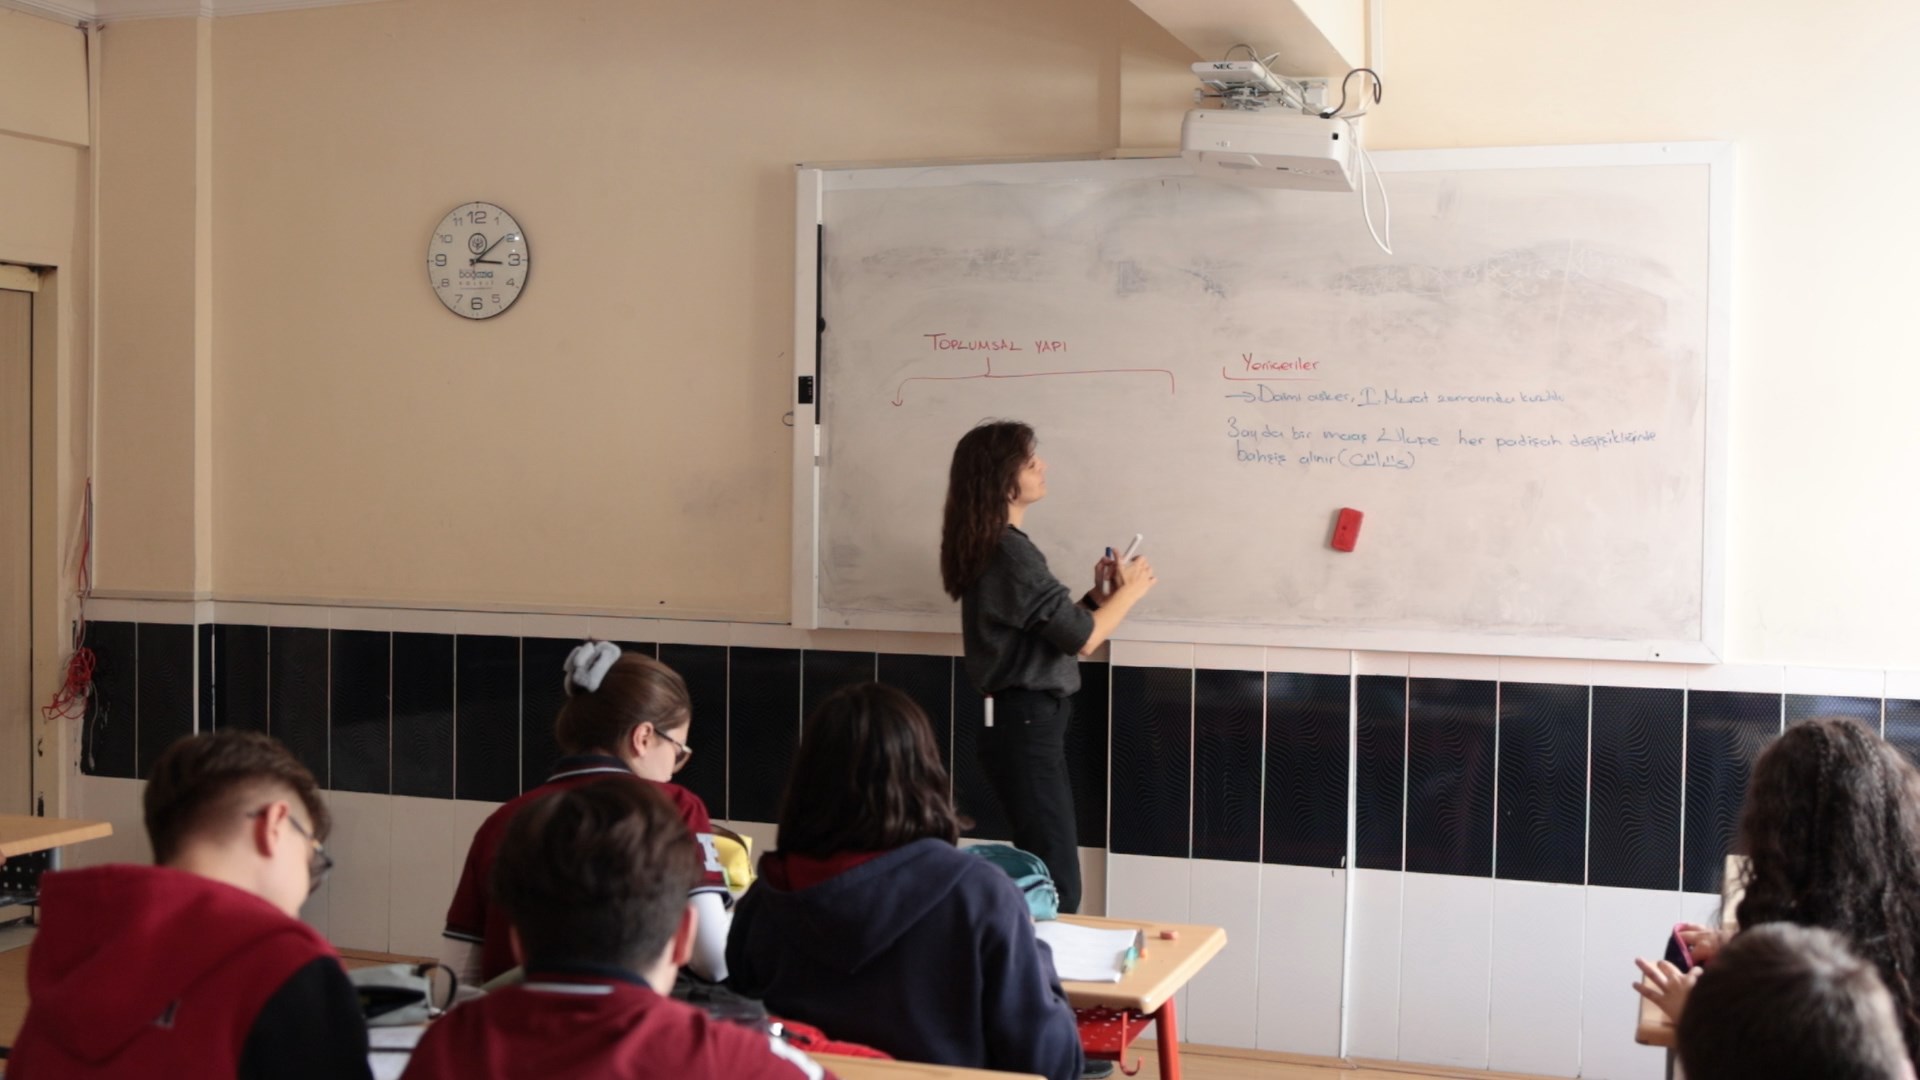 NEC
12
11 1
10 2
9 3
8 4
7 5
6
TOPLUMSAL YAPI
Yeniçeriler
→ Daimi asker, I. Murat zamanında kuruldu
3 ayda bir maaş Ulufe her padişah değişikliğinde
bahşiş alınır (Cülûs)